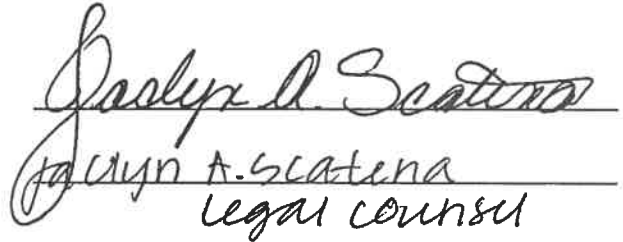 Jaclyn A. Scatena
Jaclyn A. Scatena
Legal Counsel